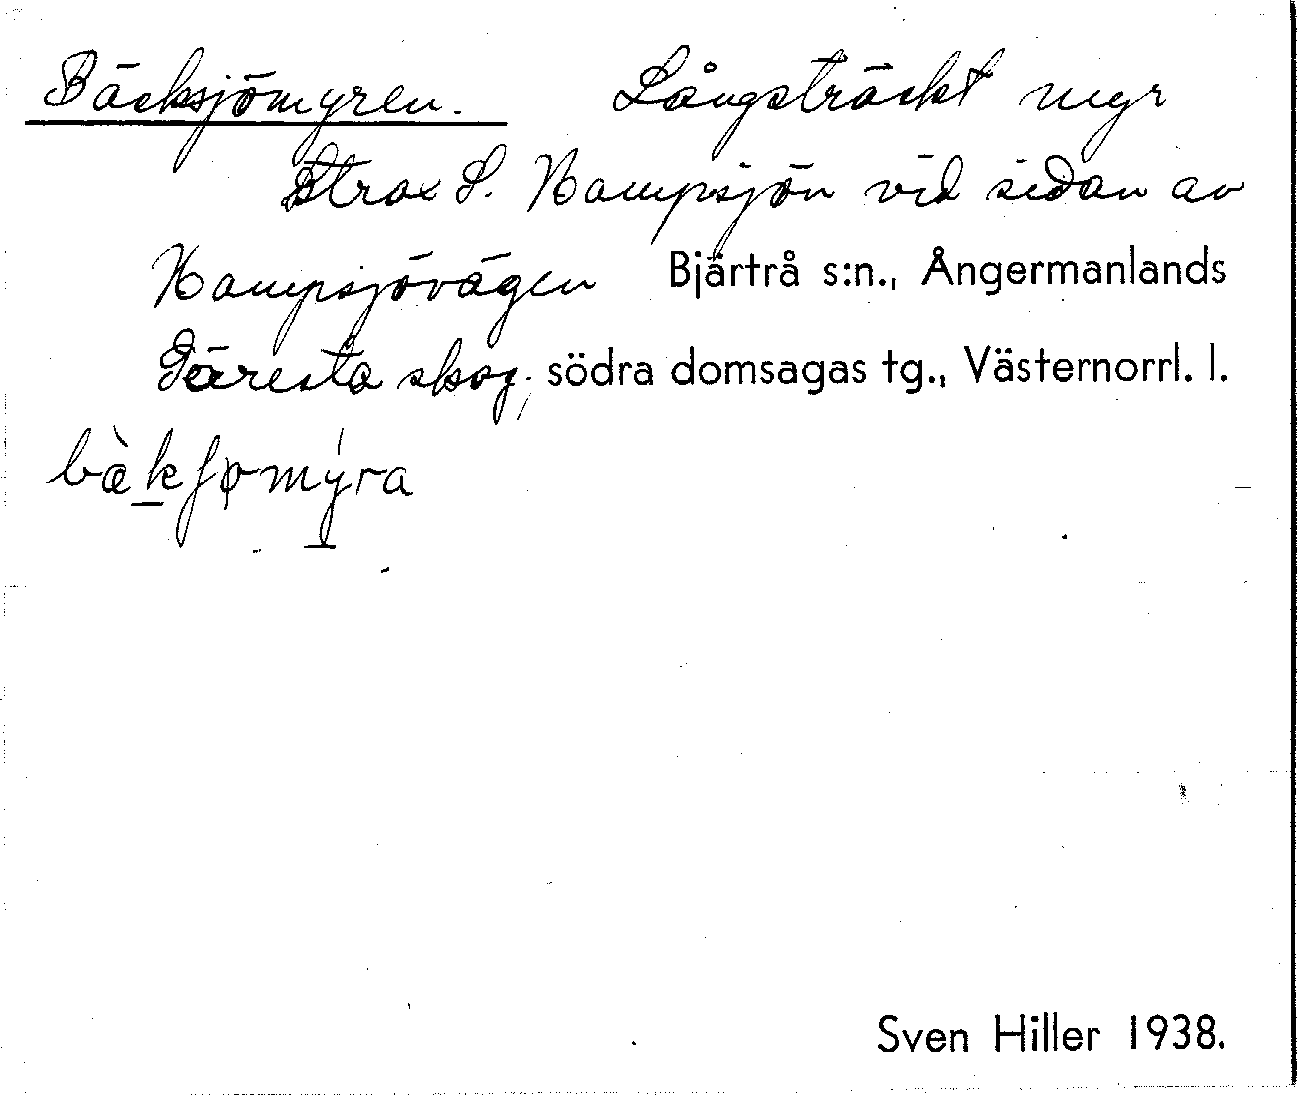 Bäcksjömyren. Långsträckt myr
strax S. Kampsjön vid sidan av
Kampsjövägen Bjärtrå s:n., Ångermanlands
Gäresta skog, södra domsagas tg., Västernorrl. l.
bæ̀kʃømýra
Sven Hiller 1938.